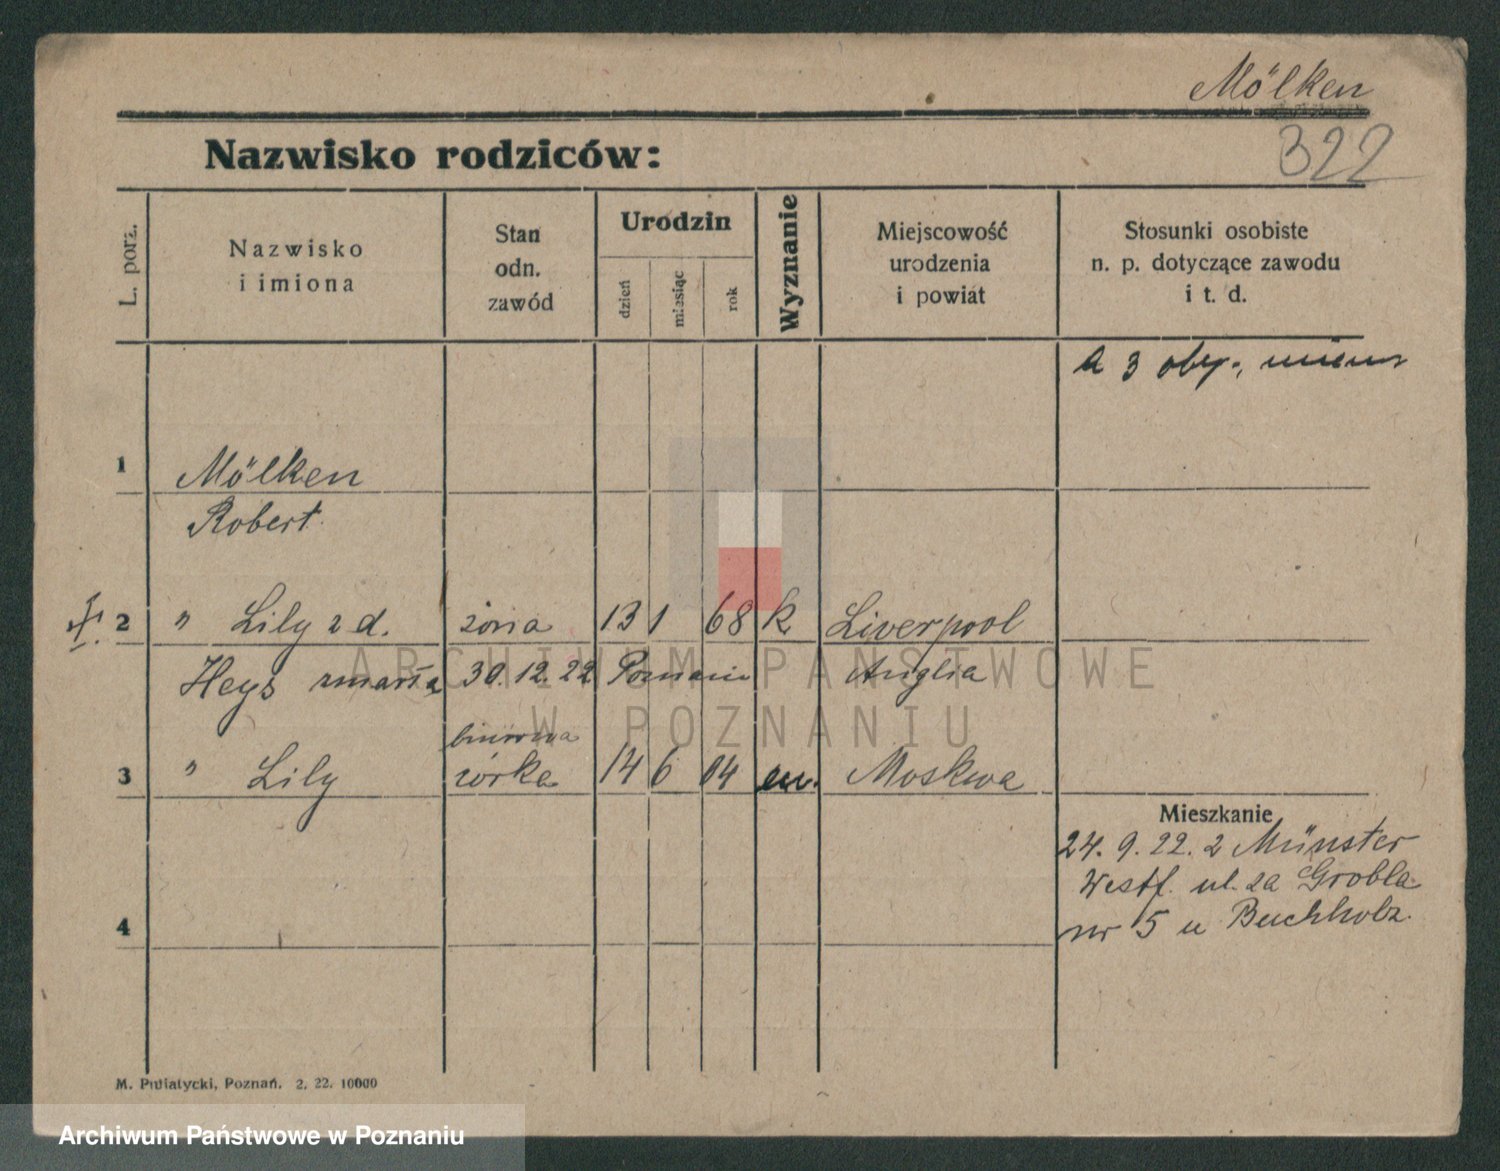 Mölken
322
Nazwisko rodziców:
L. porz.
Nazwisko
i imiona
Stan
odn.
zawód
Urodzin
dzień
miesiąc
rok
Wyznanie
Miejscowość
urodzenia
i powiat
Stosunki osobiste
n. p. dotyczące zawodu
i t. d.
a 3 oby.,
1 Mölken
Robert
2 " Lily z d. żona 13 1 68 k Liverpool
Heys zmarła 30.12.22 Poznaniu Anglia
biurowa
3 " Lily córka 14 6 04 ew. Moskwa
Mieszkanie
24. 9. 22. z Münster
Westf. ul. za Groblą
nr 5 u Buchholz.
4
M. Putiatycki, Poznań. 2. 22. 10000
ARCHIWUM PAŃSTWOWE
W POZNANIU
Archiwum Państwowe w Poznaniu